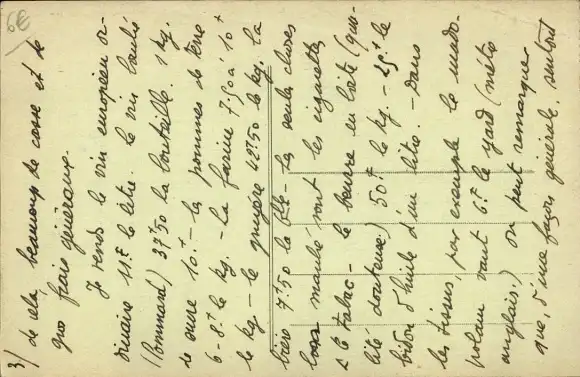 6€
3/ de cela, beaucoup de casse et de
gros frais généraux.
Je vends le vin européen or-
dinaire 11.F le litre. le vin bouché
(Pommard) 37F50 la bouteille. 1 kg.
de sucre 10.F - la pommes de terre
6 - 8F le kg. - la farine 7.50 à 10F
le kg - le gruyère 42F50 le kg. la
bière 7F50 la Blle - les seules choses
bon marché sont les cigarettes
& le tabac - le beurre en boîte (qua-
lité douteuse) 50F le kg. - 25.F le
bidon d'huile d'un litre. - Dans
les tissus, par exemple le mado-
polam vaut 6.F le yard (mètre
anglais.) On peut remarquer
que, d'une façon générale, surtout